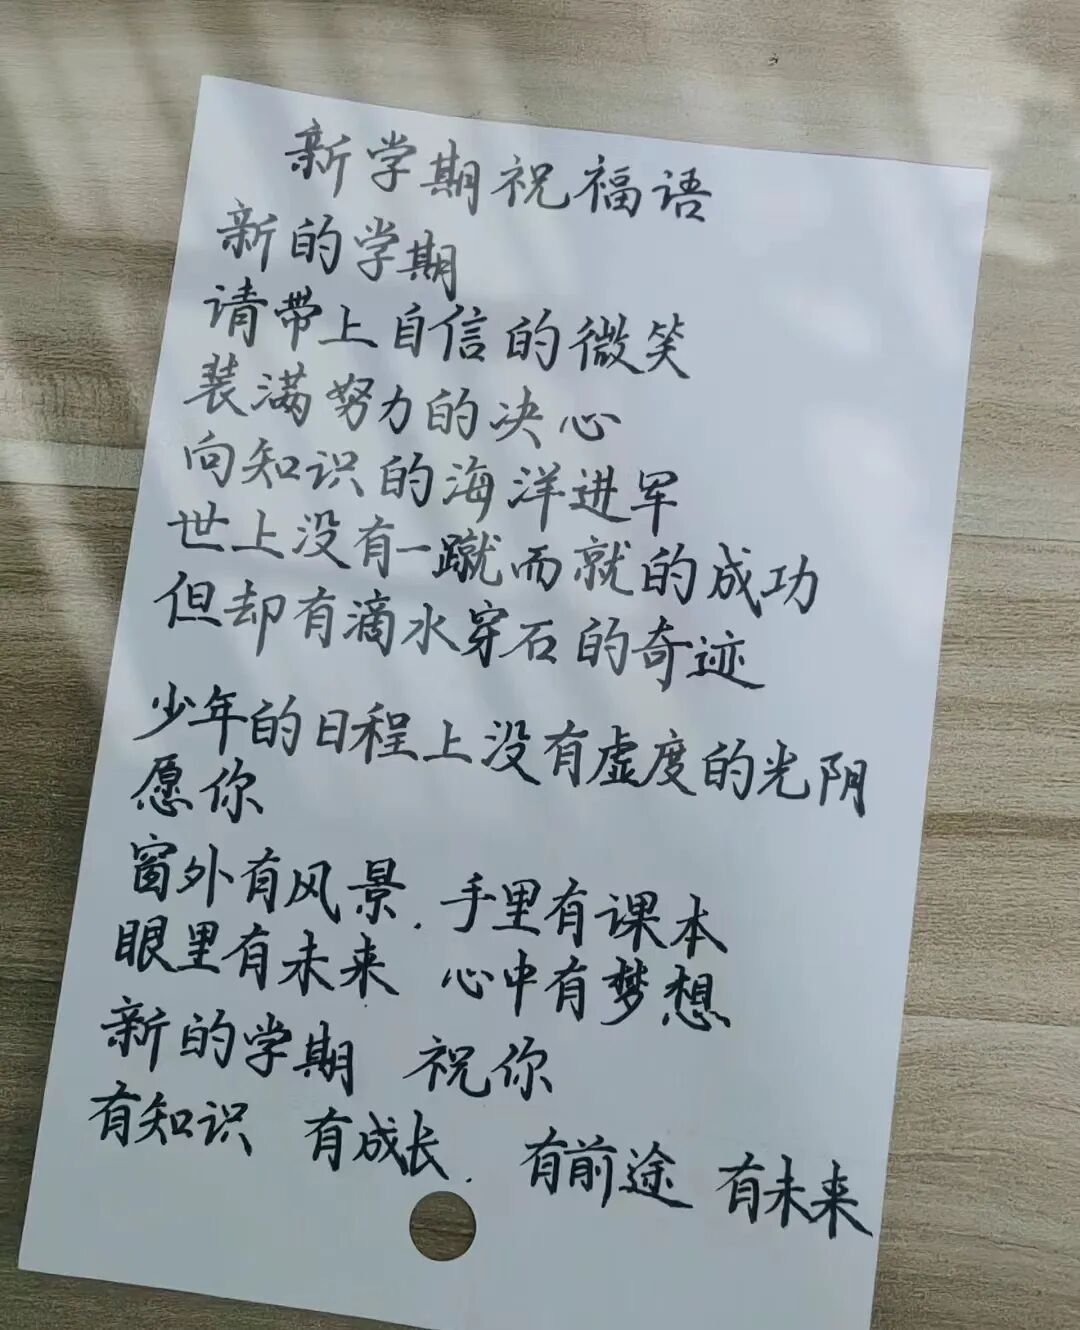 新学期祝福语
新的学期
请带上自信的微笑
装满努力的决心
向知识的海洋进军
世上没有一蹴而就的成功
但却有滴水穿石的奇迹
少年的日程上没有虚度的光阴
愿你
窗外有风景.手里有课本
眼里有未来 心中有梦想
新的学期 祝你
有知识 有成长. 有前途 有未来